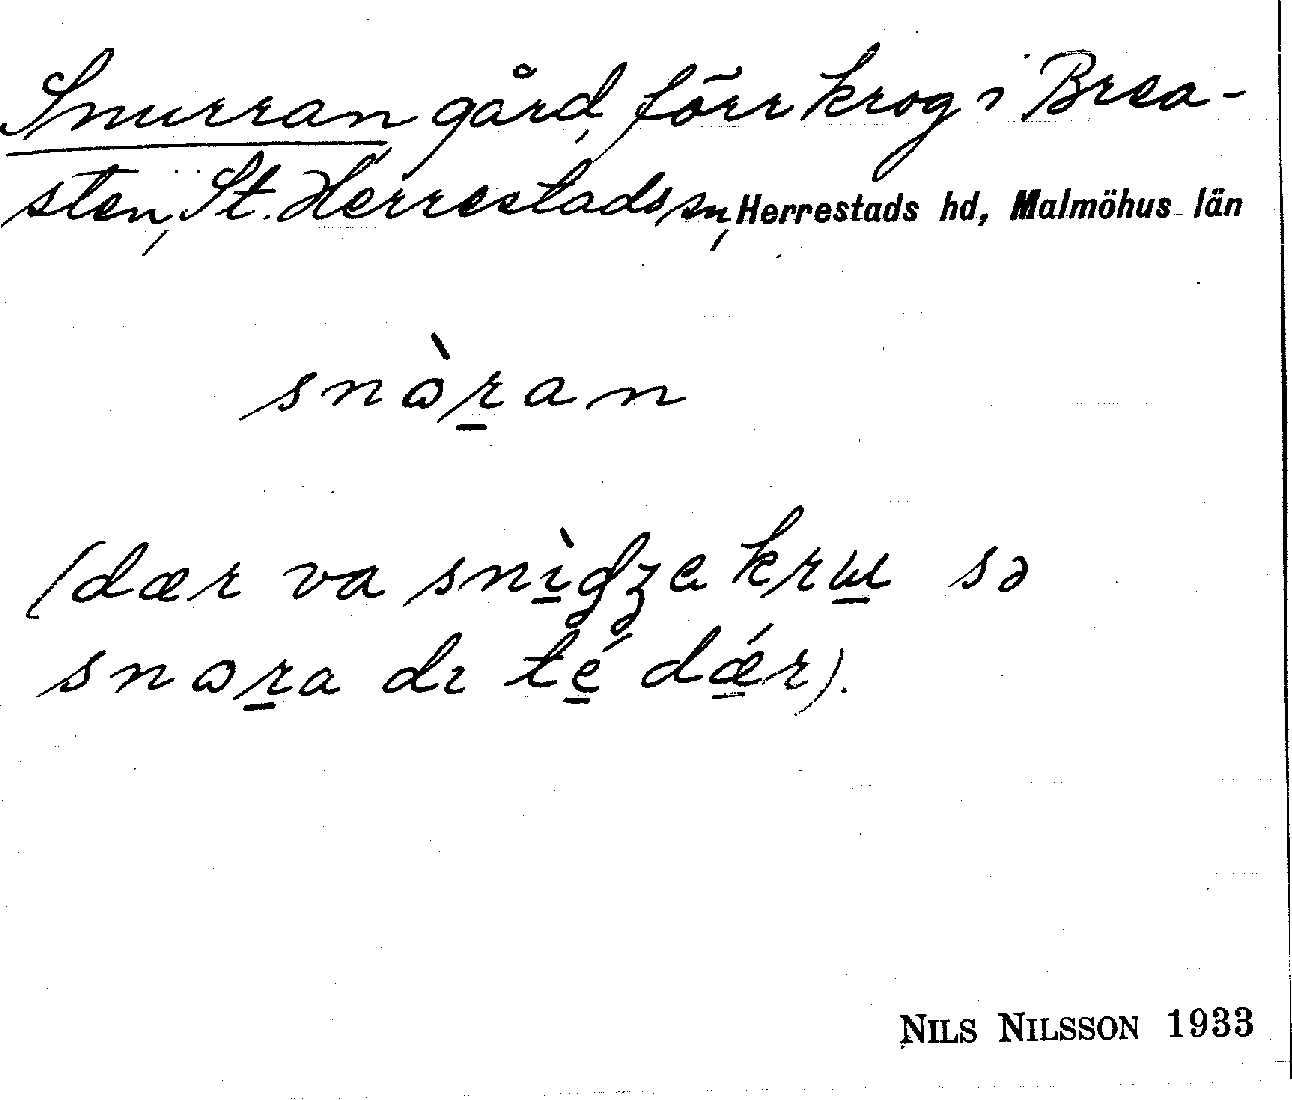 Snurran gård, förr krog i Brea-
sten, St. Herrestads sn, Herrestads hd, Malmöhus län
snɷ̀r̲an
(dær va snì̲gʒe krɯ̲ sə
snɷr̲a dı té̲ dǽ̲r).
NILS NILSSON 1933